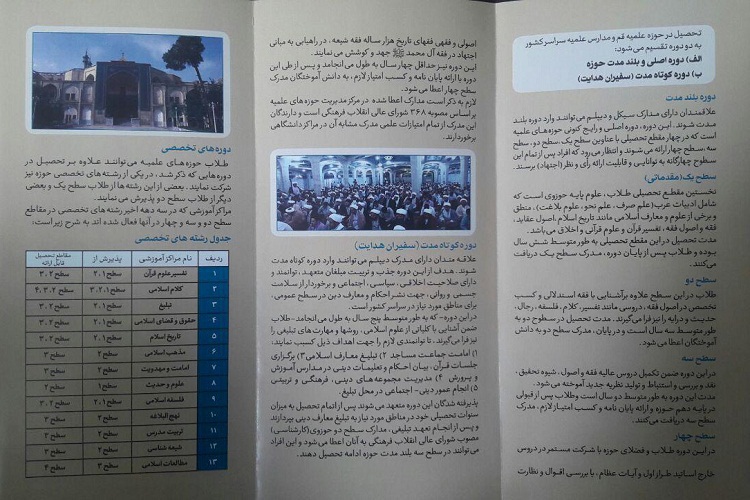 تحصیل در حوزه علمیه قم و مدارس علمیه سراسر کشور
به دو دوره تقسیم می‌شود:
الف) دوره اصلی و بلند مدت حوزه
ب) دوره کوتاه مدت (سفیران هدایت)
دوره بلند مدت
علاقمندان دارای مدارک سیکل و دیپلم می‌توانند وارد دوره بلند
مدت شوند. این دوره، دوره اصلی و رایج کنونی حوزه‌های علمیه
است که در چهار مقطع تحصیلی با عناوین سطح یک، سطح دو، سطح
سه، سطح چهار ارائه می‌شوند و انتظار می‌رود که افراد پس از تمام این
سطوح چهارگانه به توانایی و قابلیت ارائه رأی و نظر (اجتهاد) برسند.
سطح یک (مقدماتی)
نخستین مقطع تحصیلی طلاب، علوم پایه حوزوی است که
شامل ادبیات عرب (علم صرف، علم نحو، علوم بلاغت)، منطق
و برخی از علوم و معارف اسلامی مانند تاریخ اسلام، اصول عقاید،
فقه و اصول فقه، تفسیر قرآن و علوم قرآنی و اخلاق می‌باشد.
مدت تحصیل در این مقطع تحصیلی به طور متوسط شش سال
بوده و طلاب پس از پایان دوره، مدرک سطح یک دریافت
می‌کنند.
سطح دو
طلاب در این سطح علاوه بر آشنایی با فقه استدلالی و کسب
تخصص در اصول فقه، دروسی مانند تفسیر، کلام، فلسفه، رجال،
حدیث و درایه را نیز فرا می‌گیرند. مدت تحصیل در سطوح دو به
طور متوسط سه سال است و در پایان، مدرک سطح دو به دانش
آموختگان اعطا می‌شود.
سطح سه
در این دوره ضمن تکمیل دروس عالیه فقه و اصول، شیوه تحقیق،
نقد و بررسی و استنباط و تولید نظریه جدید آموخته می‌شود.
مدت این دوره به طور متوسط دو سال است و طلاب پس از قبولی
در پایه دهم حوزه و ارائه پایان نامه و کسب امتیاز لازم، مدرک
سطح سه دریافت می‌کنند.
سطح چهار
در این دوره طلاب و فضلای حوزه با شرکت مستمر در دروس
خارج اساتید طراز اول و آیات عظام، با بررسی اقوال و نظارت
اصولی و فقهی فقهای تاریخ هزار ساله فقه شیعه، در راهیابی به مبانی
اجتهاد در فقه آل محمد جهد و کوشش می‌نمایند.
این دوره نیز حداقل چهار سال به طول می‌انجامد و پس از طی این
دوره با ارائه پایان نامه و کسب امتیاز لازم، به دانش آموختگان مدرک
سطح چهار اعطا می‌شود.
لازم به ذکر است مدارک اعطا شده در مرکز مدیریت حوزه‌های علمیه
بر اساس مصوبه ۳۶۸ شورای عالی انقلاب فرهنگی است و دارندگان
این مدرک از تمام امتیازات علمی مدرک مشابه آن در مراکز دانشگاهی
برخوردارند.
دوره کوتاه مدت (سفیران هدایت)
علاقه مندان دارای مدرک دیپلم می توانند وارد دوره کوتاه مدت
شوند. هدف از این دوره جذب و تربیت مبلغان متعهد، توانمند و
دارای صلاحیت اخلاقی، سیاسی، اجتماعی و برخوردار از سلامت
جسمی و روانی، جهت نشر احکام و معارف دین در سطح عمومی،
برای مناطق مورد نیاز در سراسر کشور است.
در این دوره- که به طور متوسط پنج سال به طول می انجامد- طلاب
ضمن آشنایی با کلیاتی از علوم اسلامی، روشها و مهارت های تبلیغی را
نیز فرا می‌گیرند، تا توانمندی لازم را جهت اهداف ذیل کسب نمایند:
۱) امامت جماعت مساجد ۲) تبلیغ معارف اسلامی ۳) برگزاری
جلسات قرآن، بیان احکام و تعلیمات دینی در مدارس آموزش
و پرورش ۴) مدیریت مجموعه های دینی، فرهنگی و تربیتی
۵) انجام امور دینی- اجتماعی در محل تبلیغ.
پذیرفته شدگان این دوره متعهد می شوند پس از اتمام تحصیل به میزان
سنوات تحصیلی خود در مناطق مورد نیاز به تبلیغ معارف دینی بپردازند
و پس از انجام تعهد تبلیغی، مدارک سطح دو حوزوی (کارشناسی)
مصوب شورای عالی انقلاب فرهنگی به آنان اعطا می شود و این افراد
می توانند در سطح سه بلند مدت حوزه ادامه تحصیل دهند.
دوره های تخصصی
طلاب حوزه های علمیه می‌توانند علاوه بر تحصیل در
دوره هایی که ذکر شد، در یکی از رشته های تخصصی حوزه نیز
شرکت نمایند. بعضی از این رشته ها از طلاب سطح یک و بعضی
دیگر از طلاب سطح دو پذیرش می نمایند.
مراکز آموزشی که در سه دهه اخیر رشته های تخصصی در مقاطع
سطح دو و سه و چهار در آنها فعال شده اند به شرح زیر است:
جدول رشته های تخصصی
ردیف نام مراکز آموزشی پذیرش از مقاطع تحصیل قابل ارائه
۱ تفسیر علوم قرآن سطح ۲،۱ سطح ۳،۲
۲ کلام اسلامی سطح ۳،۲،۱ سطح ۴،۳،۲
۳ تبلیغ سطح ۲،۱ سطح ۳،۲
۴ حقوق و قضای اسلامی سطح ۲،۱ سطح ۳،۲
۵ تاریخ اسلام سطح ۲،۱ سطح ۳،۲
۶ مذهب اسلامی سطح ۲ سطح ۳
۷ امامت و مهدویت سطح ۲ سطح ۳
۸ علوم و حدیث سطح ۱ سطح ۲
۹ فلسفه اسلامی سطح ۲،۱ سطح ۳،۲
۱۰ نهج البلاغه سطح ۲ سطح ۳
۱۱ تربیت مدرس سطح ۲ سطح ۳
۱۲ شیعه شناسی سطح ۲ سطح ۳
۱۳ مطالعات اسلامی سطح ۳ سطح ۴